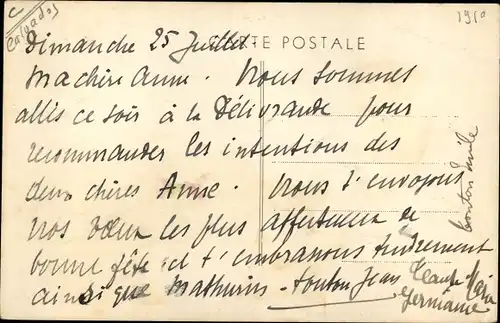 C
Calvados
1910
CARTE POSTALE
Dimanche 25 Juillet
Ma chère Anne. Nous sommes
allés ce soir à la Délivrande pour
recommander les intentions des
deux chères Anne. Nous t'envoyons
nos vœux les plus affectueux de
bonne fête et t'embrassons tendrement
ainsi que Mathurin - tonton Jean
Claude
Germaine
tonton Emile